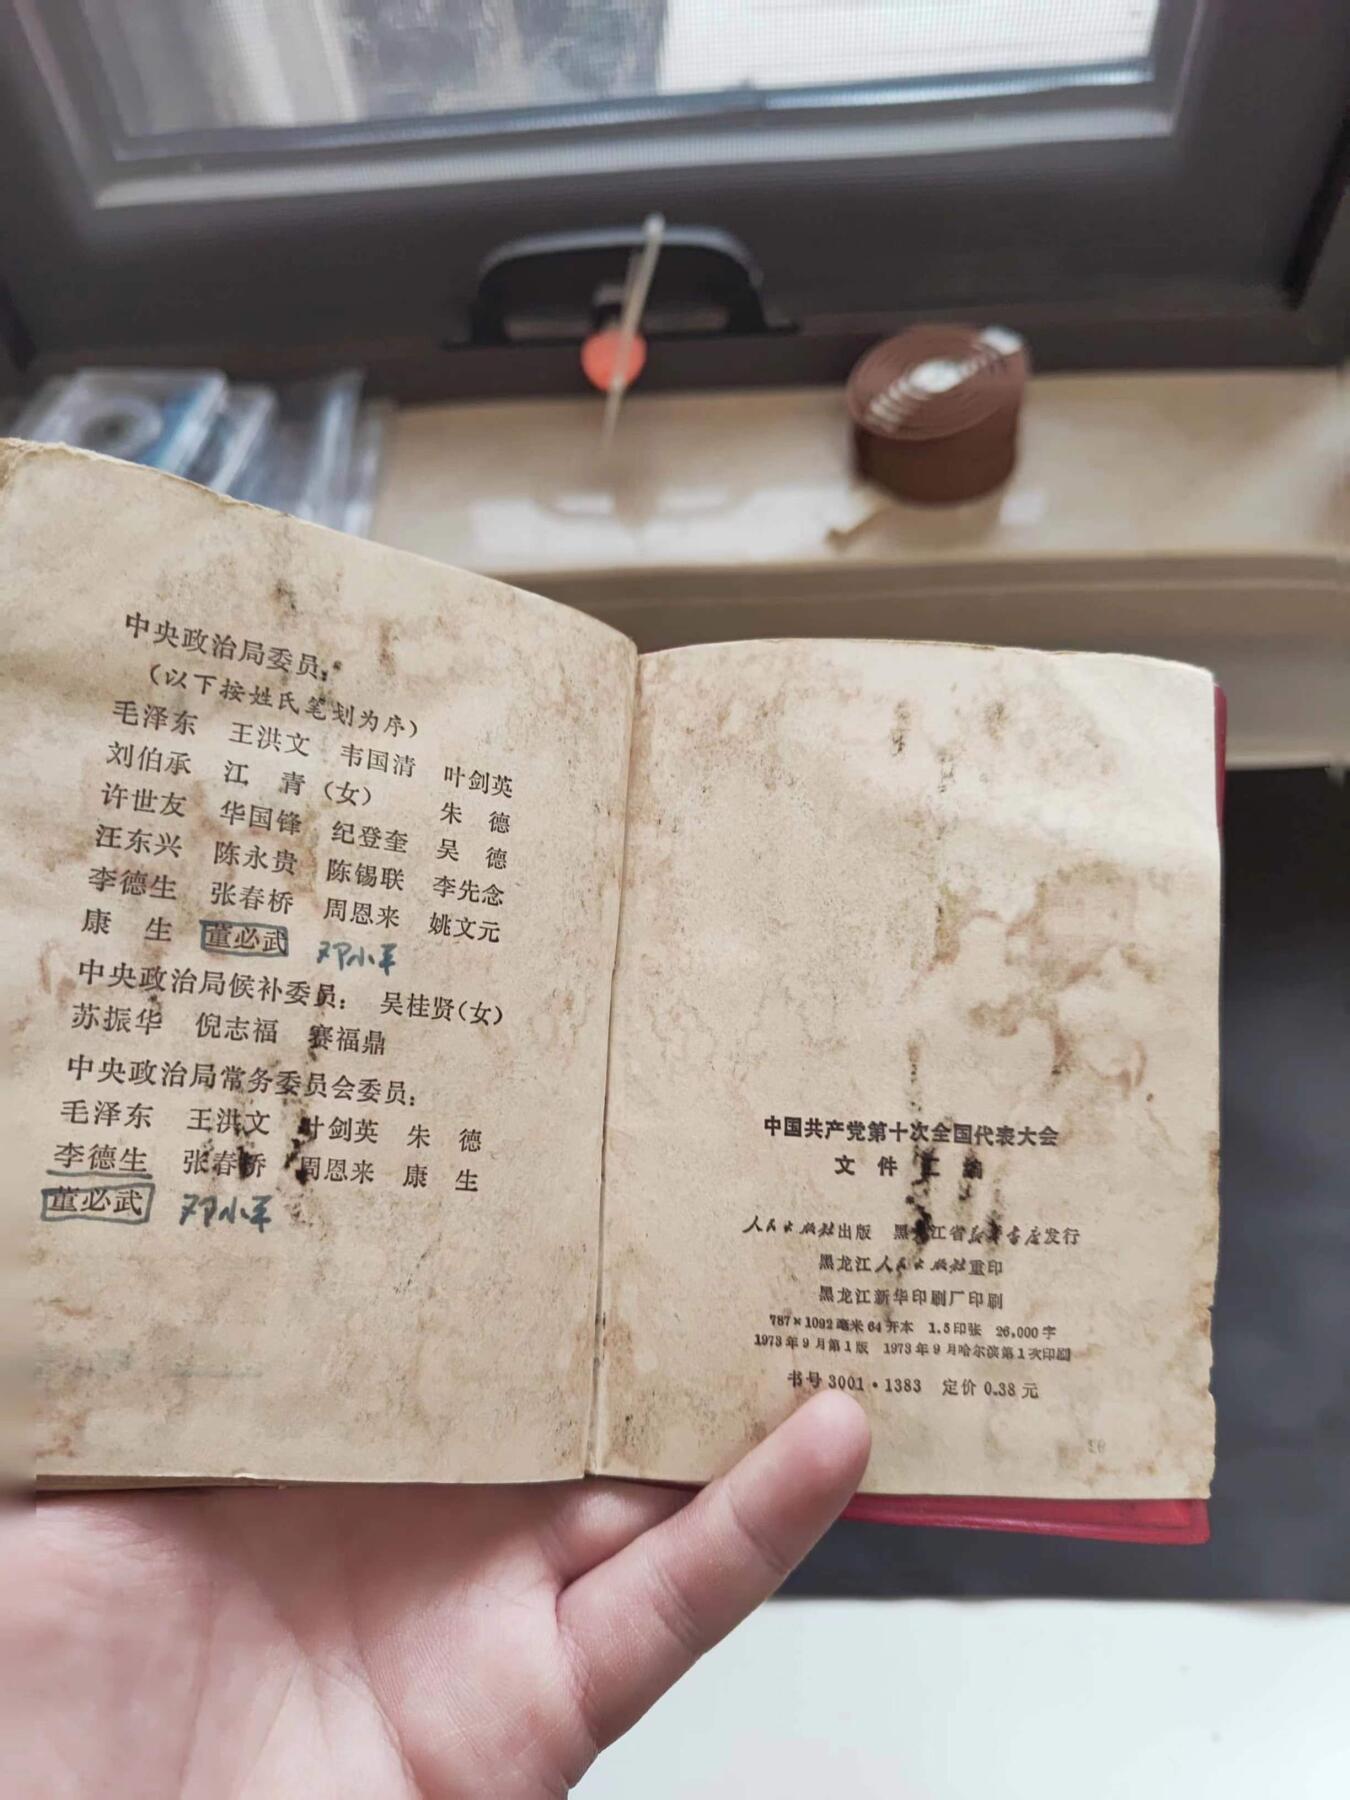 中央政治局委员：
（以下按姓氏笔划为序）
毛泽东 王洪文 韦国清 叶剑英
刘伯承 江 青（女） 朱 德
许世友 华国锋 纪登奎 吴 德
汪东兴 陈永贵 陈锡联 李先念
李德生 张春桥 周恩来 姚文元
康 生 董必武 邓小平
中央政治局候补委员： 吴桂贤（女）
苏振华 倪志福 赛福鼎
中央政治局常务委员会委员：
毛泽东 王洪文 叶剑英 朱 德
李德生 张春桥 周恩来 康 生
董必武 邓小平
中国共产党第十次全国代表大会
文件汇编
人民出版社出版 黑龙江省新华书店发行
黑龙江人民出版社重印
黑龙江新华印刷厂印刷
787×1092毫米 64开本 1.5印张 26,000字
1973年9月第1版 1973年9月哈尔滨第1次印刷
书号 3001·1383 定价 0.38 元